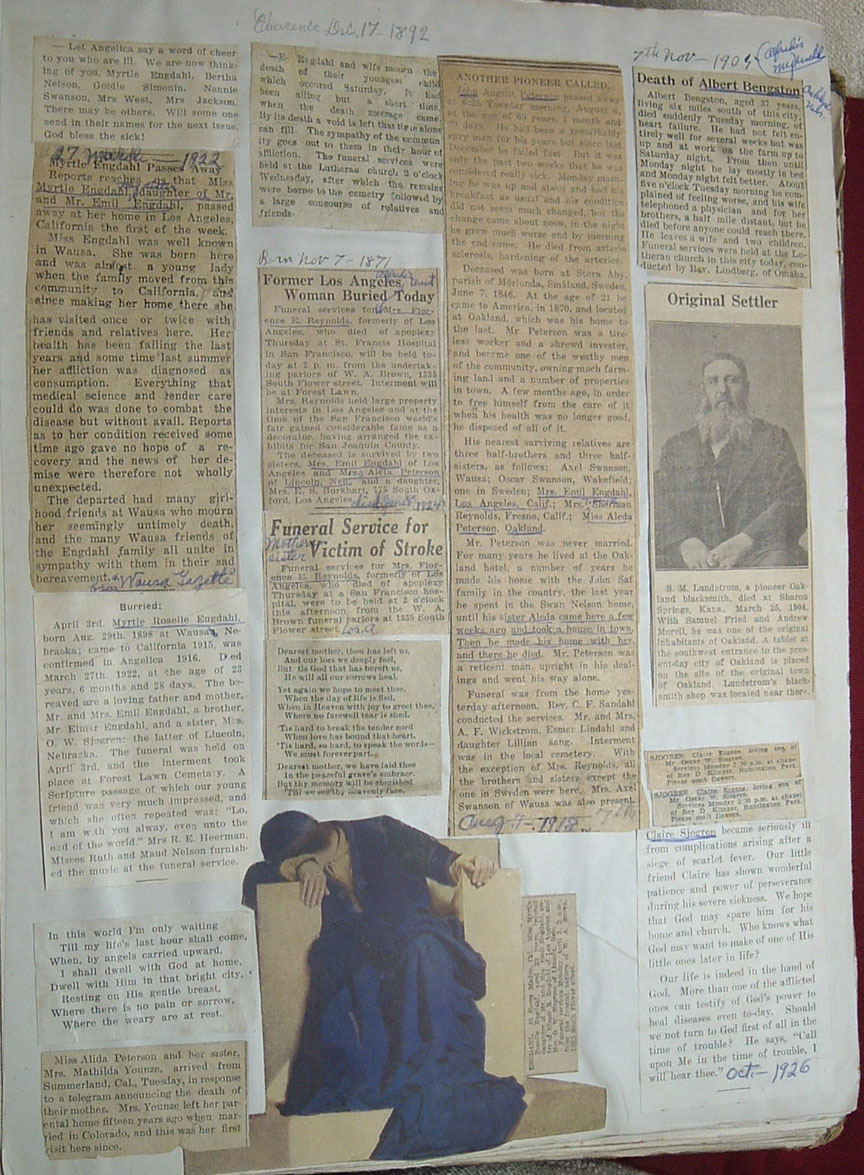 Clarence Dec. 17. 1892
— Let Angelica say a word of cheer
to you who are ill. We are now think-
ing of you, Myrtle Engdahl, Bertha
Nelson, Goldie Simonin, Nannie
Swanson, Mrs West, Mrs Jackson.
There may be others. Will some one
send in their names for the next issue.
God bless the sick!
27 March — 1922
Myrtle Engdahl Passes Away
Reports reaches us that Miss
Myrtle Engdahl, daughter of Mr.
and Mr. Emil Engdahl, passed
away at her home in Los Angeles,
California the first of the week.
Miss Engdahl was well known
in Wausa. She was born here
and was almost a young lady
when the family moved from this
community to California, and
since making her home there she
has visited once or twice with
friends and relatives here. Her
health has been failing the last
years and some time last summer
her affliction was diagnosed as
consumption. Everything that
medical science and tender care
could do was done to combat the
disease but without avail. Reports
as to her condition received some
time ago gave no hope of a re-
covery and the news of her de-
mise were therefore not wholly
unexpected.
The departed had many girl-
hood friends at Wausa who mourn
her seemingly untimely death,
and the many Wausa friends of
the Engdahl family all unite in
sympathy with them in their sad
bereavement.
from "Wausa Gazette"
Burried:
April 3rd, Myrtle Roselle Engdahl,
born Aug. 29th. 1898 at Wausa, Ne-
braska; came to California 1915, was
confirmed in Angelica 1916. Died
March 27th. 1922, at the age of 23
years, 6 months and 28 days. The be-
reaved are a loving father and mother,
Mr. and Mrs. Emil Engdahl, a brother,
Mr. Elmer Engdahl, and a sister, Mrs.
O. W. Sjogren; the latter of Lincoln,
Nebraska. The funeral was held on
April 3rd, and the interment took
place at Forest Lawn Cemetary. A
Scripture passage of which our young
friend was very much impressed, and
which she often repeated was: "Lo,
I am with you alway, even unto the
end of the world." Mrs R. E. Heerman,
Misses Ruth and Maud Nelson furnish-
ed the music at the funeral service.
In this world I'm only waiting
Till my life's last hour shall come,
When, by angels carried upward,
I shall dwell with God at home,
Dwell with Him in that bright city,
Resting on His gentle breast,
Where there is no pain or sorrow,
Where the weary are at rest.
Miss Alida Peterson and her sister,
Mrs. Mathilda Younze, arrived from
Summerland, Cal., Tuesday, in response
to a telegram announcing the death of
their mother. Mrs. Younze left her par-
ental home fifteen years ago when mar-
ried in Colorado, and this was her first
visit here since.
Engdahl and wife mourn the
death of their youngest child
which occored Saturday. It had
been ailing but a short time,
when the death message came.
By its death a void is left that time alone
can fill. The sympathy of the commun
ity goes out to them in their hour of
affliction. The funeral services were
held at the Lutheran church, 2 o'clock
Wednesday, after which the remains
were borne to the cemetry followed by
a large concourse of rulatives and
friends.
Born Nov 7 - 1871
Former Los Angeles
Woman Buried Today
Funeral services for Mrs. Flor-
ence E. Reynolds, formerly of Los
Angeles, who died of apoplexy
Thursday at St. Francis Hospital
in San Francisco, will be held to-
day at 2 p. m. from the undertak-
ing parlors of W. A. Brown, 1335
South Flower street. Interment will
be at Forest Lawn.
Mrs. Reynolds held large property
interests in Los Angeles and at the
time of the San Francisco world's
fair gained considerable fame as a
decorator, having arranged the ex-
hibits for San Joaquin County.
The deceased is survived by two
sisters, Mrs. Emil Engdahl of Los
Angeles and Mrs. Aleda Peterson
of Lincoln, Neb., and a daughter,
Mrs. E. S. Burkhart, 175 South Ox-
ford, Los Angeles.
Funeral Service for
Victim of Stroke
Mother's
sister
Funeral services for Mrs. Flor-
ence E. Reynolds, formerly of Los
Angeles, who died of apoplexy
Thursday at a San Francisco hos-
pital, were to be held at 2 o'clock
this afternoon from the W. A.
Brown funeral parlors at 1335 South
Flower street.
Dearest mother, thou has left us,
And our loss we deeply feel,
But 'tis God that has bereft us,
He will all our sorrows heal.
Yet again we hope to meet thee,
When the day of life is fled,
When in Heaven with joy to greet thee,
Where no farewell tear is shed.
'Tis hard to break the tender cord
When love has bound that heart.
'Tis hard, so hard, to speak the words—
We must forever part.
Dearest mother, we have laid thee
In the peaceful grave's embrace.
But thy memory will be cherished
Till we see thy heavenly face.
ANOTHER PIONEER CALLED.
John August Peterson passed away
at 6:25 Tuesday morning, August
at the age of 69 years, 1 month and
days. He had been a remarkably
spry man for his years but since last
December he failed fast. But it was
only the past two weeks that he was
considered really sick. Monday morn-
ing he was up and about and had his
breakfast as usual and his condition
did not seem much changed, but the
change came about noon, in the night
he grew much worse and by morning
the end came. He died from arterio
sclerosis, hardening of the arteries.
Deceased was born at Stora Aby,
parish of Morlunda, Smaland, Sweden,
June 7, 1846. At the age of 21 he
came to America, in 1870, and located
at Oakland, which was his home to
the last. Mr. Peterson was a tire-
less worker and a shrewd investor,
and became one of the wealthy men
of the community, owning much farm-
ing land and a number of properties
in town. A few months ago, in order
to free himself from the care of it
when his health was no longer good,
he disposed of all of it.
His nearest surviving relatives are
three half-brothers and three half-
sisters, as follows: Axel Swanson,
Wausa; Oscar Swanson, Wakefield;
one in Sweden; Mrs. Emil Engdahl,
Los Angeles, Calif.; Mrs.
Reynolds, Fresno, Calif.; Miss Aleda
Peterson, Oakland.
Mr. Peterson was never married.
For many years he lived at the Oak-
land hotel, a number of years he
made his home with the John Saf
family in the country, the last year
he spent in the Swan Nelson home,
until his sister Aleda came here a few
weeks ago and took a house in town.
Then he made his home with her,
and there he died. Mr. Peterson was
a reticent man, upright in his deal-
ings and went his way alone.
Funeral was from the home yes-
terday afternoon. Rev. C. F. Sandahl
conducted the services. Mr. and Mrs.
A. F. Wickstrom, Esmer Lindahl and
daughter Lillian sang. Interment
was in the local cemetery. With
the exception of Mrs. Reynolds, all
the brothers and sisters except the
one in Sweden were here. Mrs. Axel
Swanson of Wausa was also present.
7th Nov — 1904
Death of Albert Bengston
Albert Bengston, aged 37 years,
living six miles south of this city,
died suddenly Tuesday morning, of
heart failure. He had not felt en-
tirely well for several weeks but was
up and at work on the farm up to
Saturday night. From then until
Monday night he lay mostly in bed
and Monday night felt better. About
five o'clock Tuesday morning he com-
plained of feeling worse, and his wife
telephoned a physician and for her
brothers, a half mile distant, but he
died before anyone could reach there.
He leaves a wife and two children.
Funeral services were held at the Lu-
theran church in this city today, con-
ducted by Rev. Lindberg, of Omaha.
Original Settler
S. M. Lundstrom, a pioneer Oak-
land blacksmith, died at Sharon
Springs, Kans., March 25, 1904.
With Samuel Fried and Andrew
Morell, he was one of the original
inhabitants of Oakland. A tablet at
the southwest entrance to the pres-
ent-day city of Oakland is placed
on the site of the original town
of Oakland. Lundstrom's black-
smith shop was located near there.
SJOGREN. Claire Eugene, loving son of
Mr. Oscar W. Sjogren.
Services Monday 2:30 p.m. at chapel
of Roy D. Klinger, Huntington Park.
Please omit flowers.
SJOGREN. Claire Eugene, loving son of
Mr. Oscar W. Sjogren.
Services Monday 2:30 p.m. at chapel
of Roy D. Klinger, Huntington Park.
Please omit flowers.
Claire Sjogren became seriously ill
from complications arising after a
siege of scarlet fever. Our little
friend Claire has shown wonderful
patience and power of perseverance
during his severe sickness. We hope
that God may spare him for his
home and church. Who knows what
God may want to make of one of His
little ones later in life?
Our life is indeed in the hand of
God. More than one of the afflicted
ones can testify of God's power to
heal diseases even to-day. Should
we not turn to God first of all in the
time of trouble? He says, "Call
upon Me in the time of trouble, I
will hear thee."
Oct — 1926